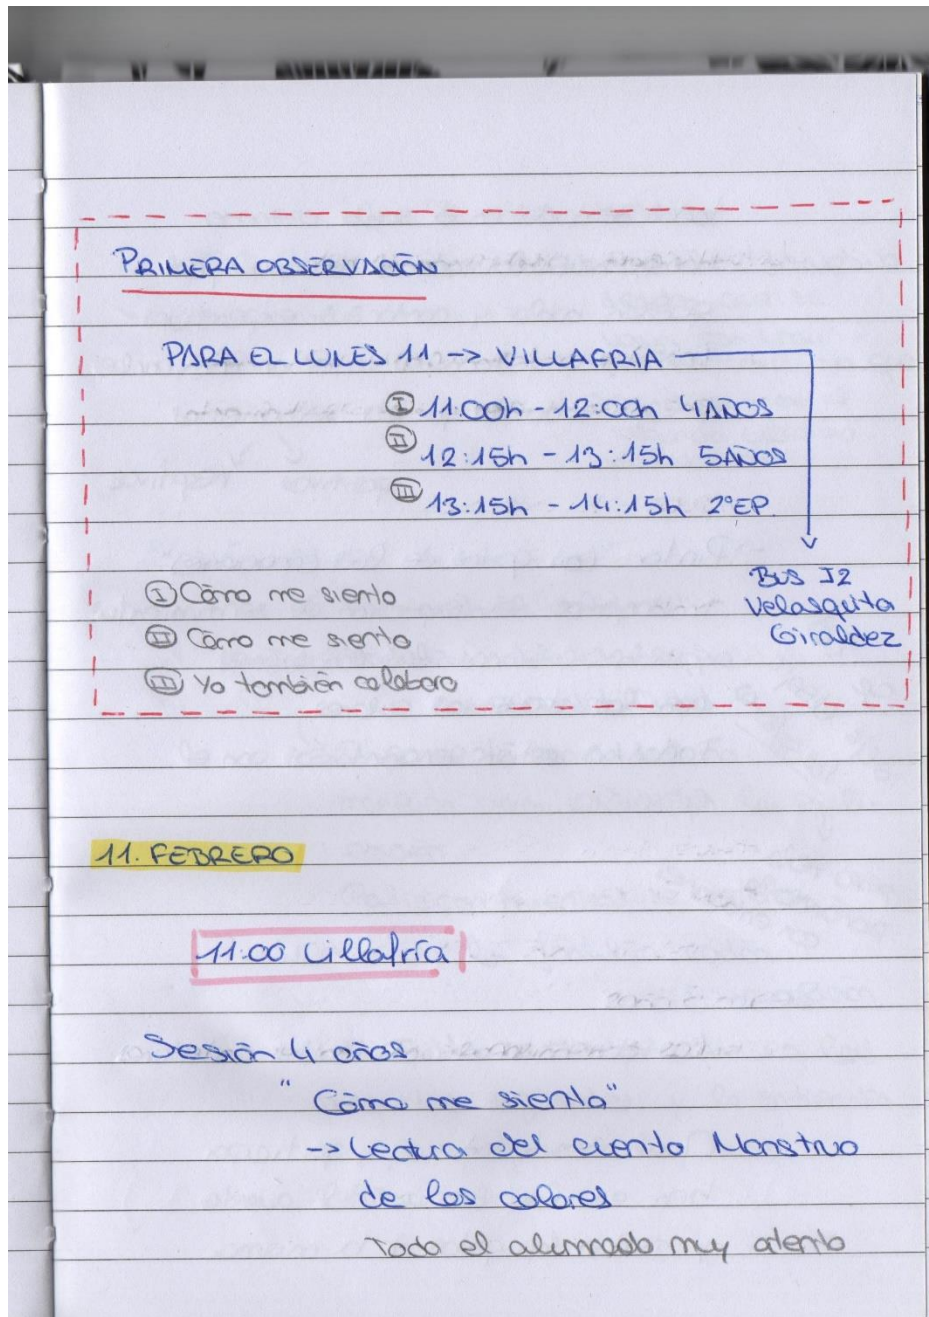 PRIMERA OBSERVACIÓN
PARA EL LUNES 11 -> VILLAFRÍA
I 11:00h - 12:00h 4 AÑOS
II 12:15h - 13:15h 5 AÑOS
III 13:15h - 14:15h 2º EP.
Bus I2
Velasquita
Giraldez
I Cómo me siento
II Cómo me siento
III Yo también colaboro
11. FEBRERO
11:00 Villafría
Sesión 4 años
"Cómo me siento"
-> Lectura del cuento Monstruo
de los colores
Todo el alumnado muy atento